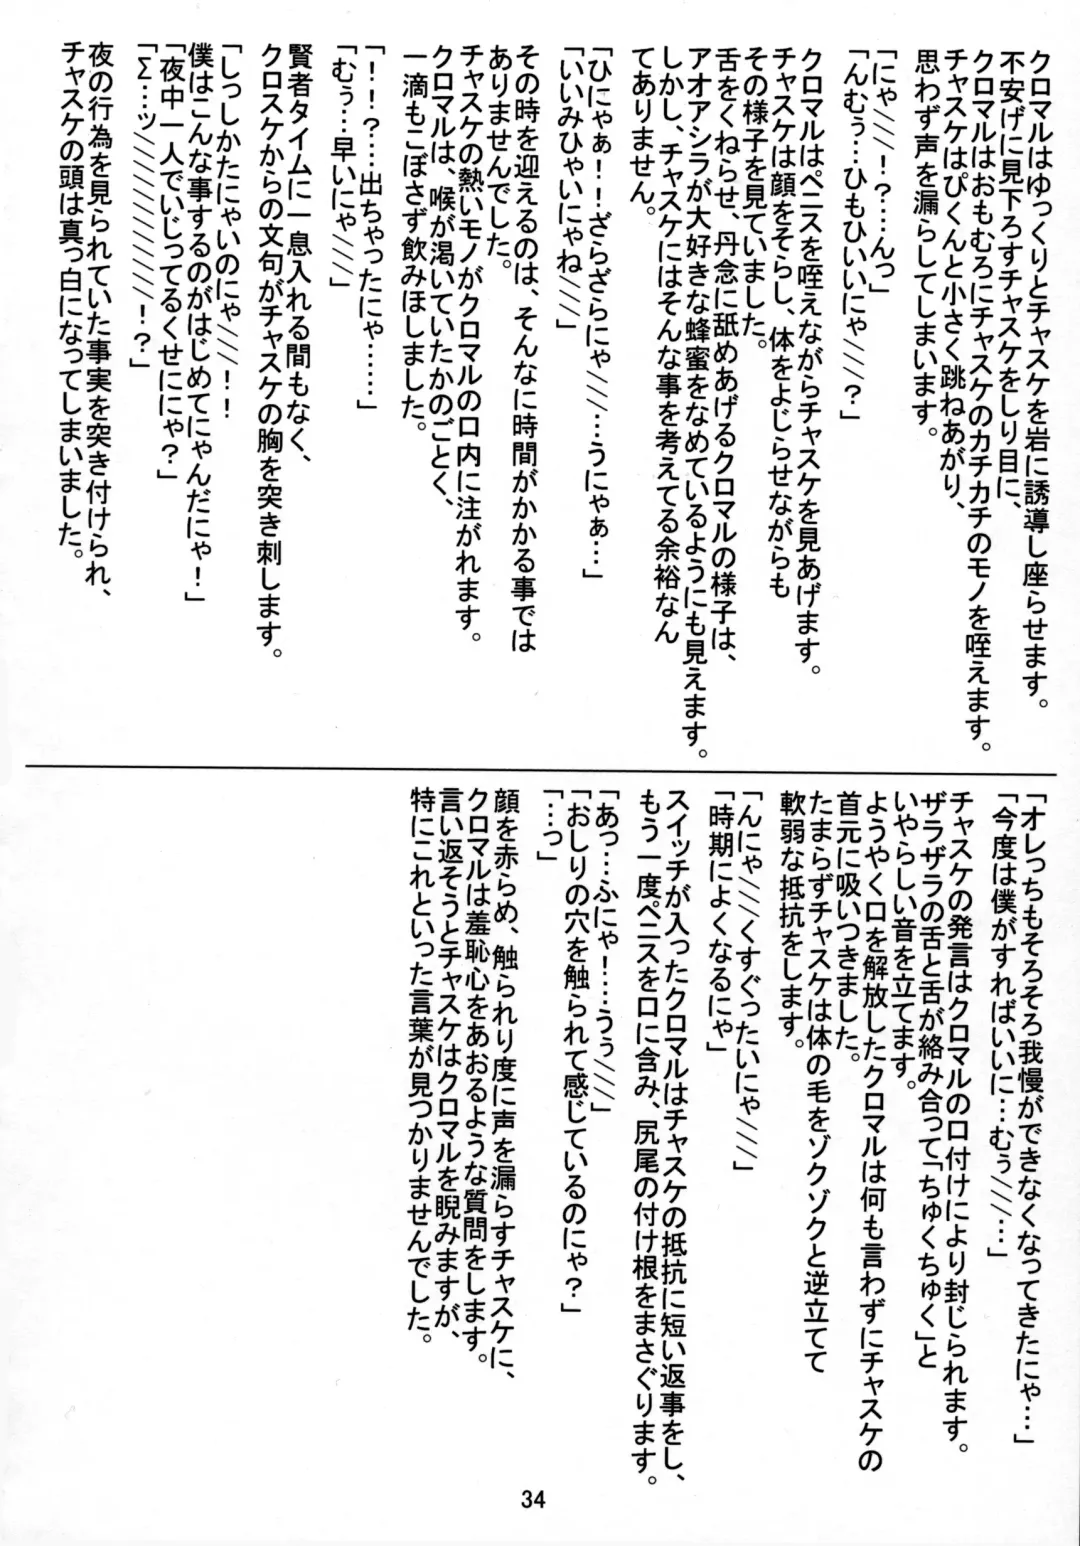 クロマルはゆっくりとチャスケを岩に誘導し座らせます。
不安げに見下ろすチャスケをしり目に、
クロマルはおもむろにチャスケのカチカチのモノを咥えます。
チャスケはぴくんと小さく跳ねあがり、
思わず声を漏らしてしまいます。
「にゃ///！？……んっ」
「んむぅ…ひもひいいにゃ///？」
クロマルはペニスを咥えながらチャスケを見あげます。
チャスケは顔をそらし、体をよじらせながらも
その様子を見ていました。
舌をくねらせ、丹念に舐めあげるクロマルの様子は、
アオアシラが大好きな蜂蜜をなめているようにも見えます。
しかし、チャスケにはそんな事を考えてる余裕なん
てありません。
「ひにゃぁ！！ざらざらにゃ///…うにゃぁ…」
「いいみひゃいにゃね///」
その時を迎えるのは、そんなに時間がかかる事では
ありませんでした。
チャスケの熱いモノがクロマルの口内に注がれます。
クロマルは、喉が渇いていたかのごとく、
一滴もこぼさず飲みほしました。
「！！？…出ちゃったにゃ……」
「むぅ…早いにゃ///」
賢者タイムに一息入れる間もなく、
クロスケからの文句がチャスケの胸を突き刺します。
「しっしかたにゃいのにゃ///！！
僕はこんな事するのがはじめてにゃんだにゃ！」
「夜中一人でいじってるくせににゃ？」
「Σ…ッ////////！？」
夜の行為を見られていた事実を突き付けられ、
チャスケの頭は真っ白になってしまいました。
「オレっちもそろそろ我慢ができなくなってきたにゃ…」
「今度は僕がすればいいに…むぅ///…」
チャスケの発言はクロマルの口付けにより封じられます。
ザラザラの舌と舌が絡み合って「ちゅくちゅく」と
いやらしい音を立てます。
ようやく口を解放したクロマルは何も言わずにチャスケの
首元に吸いつきました。
たまらずチャスケは体の毛をゾクゾクと逆立てて
軟弱な抵抗をします。
「んにゃ///くすぐったいにゃ///」
「時期によくなるにゃ」
スイッチが入ったクロマルはチャスケの抵抗に短い返事をし、
もう一度ペニスを口に含み、尻尾の付け根をまさぐります。
「あっ…ふにゃ！……うぅ///」
「おしりの穴を触られて感じているのにゃ？」
「…っ」
顔を赤らめ、触られり度に声を漏らすチャスケに、
クロマルは羞恥心をあおるような質問をします。
言い返そうとチャスケはクロマルを睨みますが、
特にこれといった言葉が見つかりませんでした。
34